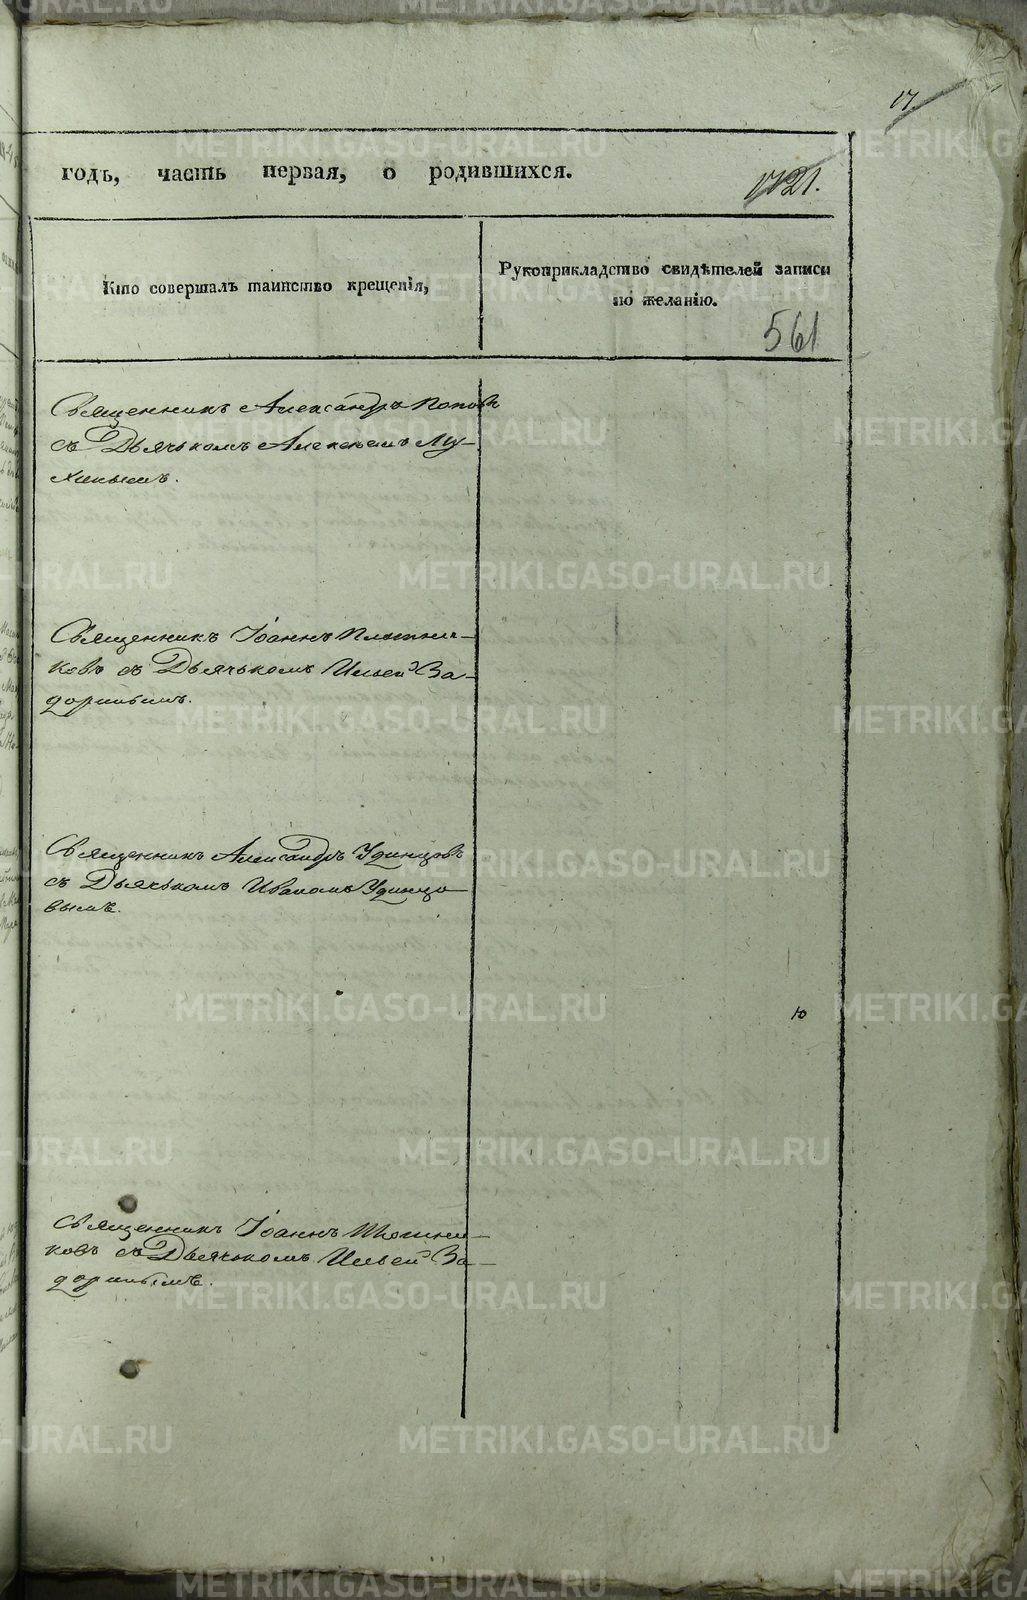 17
годъ, часть первая, о родившихся.
1121.
Кто совершалъ таинство крещенія,
Рукоприкладство свидѣтелей записи
по желанію.
561
Священникъ Александръ Поповъ
съ Дьячькомъ Алексеемъ Му-
хинымъ.
Священникъ Іоаннъ Плотни-
ковъ съ Дьячькомъ Ильей За-
дориннымъ.
Священникъ Александръ Удинцовъ
съ Дьячькомъ Иваномъ Удинцо
вымъ.
Священникъ Іоаннъ Плотни-
ковъ съ Дьячькомъ Ильей За-
дориннымъ.
METRIKI.GASO-URAL.RU